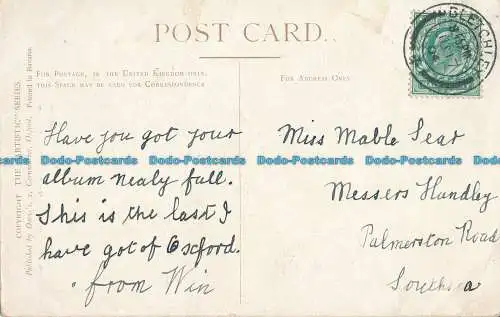 POST CARD.
FOR POSTAGE, IN THE UNITED KINGDOM ONLY,
THIS SPACE MAY BE USED FOR CORRESPONDENCE
FOR ADDRESS ONLY
BLETCHLEY
COPYRIGHT THE "ARTISTIC" SERIES.
Published by
Oxford. Printed in Bavaria.
Have you got your
album nealy full.
This is the last I
have got of Oxford.
from Win
Miss Mable Sear
Messers Handley
Palmerston Road
Southsea
Dodo-Postcards Dodo-Postcards Dodo-Postcards Dodo-Postcards
Dodo-Postcards Dodo-Postcards Dodo-Postcards Dodo-Postcards